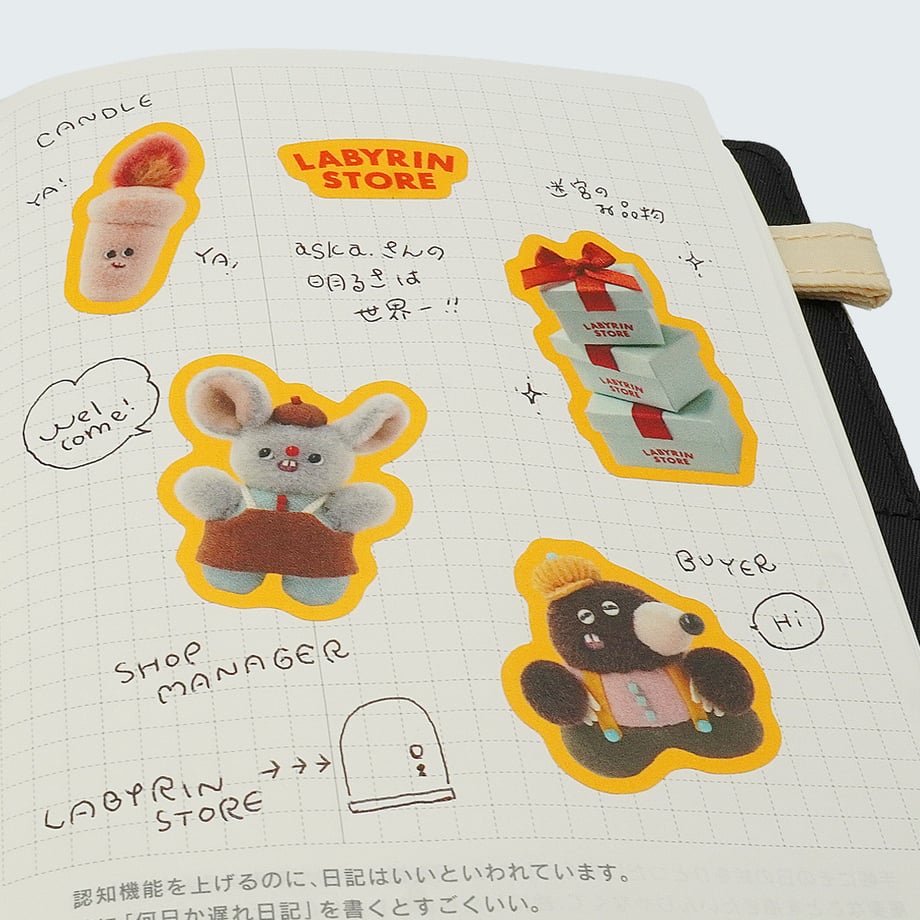 CANDLE
YA!
YA!
LABYRIN
STORE
迷宮の
お品物
aska.さんの
明るさは
世界一!!
LABYRIN
STORE
LABYRIN
STORE
LABYRIN
STORE
wel
come!
BUYER
Hi
SHOP
MANAGER
LABYRIN
STORE
認知機能を上げるのに、日記はいいといわれています。
「何日か遅れ日記」を書くとすごくいい。